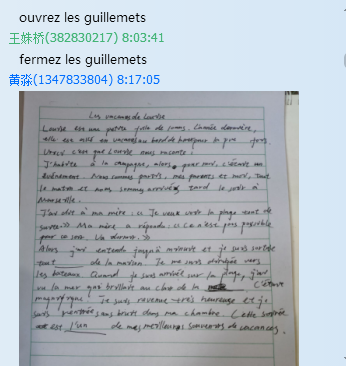 ouvrez les guillemets
王姝桥(382830217) 8:03:41
fermez les guillemets
黄淼(1347833804) 8:17:05
Les vacances de Louise
Louise est une petite fille de ans. L'année dernière,
elle est allé en vacances au bord de pour la fois.
Voici c'est que Louise nous raconte:
J'habite à la campagne, alors, pour moi, c'était un
événement. Nous sommes partis, mes parents et moi, tout
le matin et nous sommes arrivés tard le soir à
Marseille.
J'ai dit à ma mère: « Je veux voir la plage tout de
suite. » Ma mère a répondu: « Ce n'est pas possible
pour ce soir. Va dormir. »
Alors j'ai entendu jusqu'à minuit et je suis sortie
tout de la maison. Je me suis dirigée vers
les bateaux. Quand je suis arrivée sur la plage, j'ai
vu la mer qui brillait au clair de la C'était
magnifique. Je suis revenue très heureuse et je
suis rentrée sans bruit dans ma chambre. Cette soirée
est l'un de mes meilleurs souvenirs de vacances.